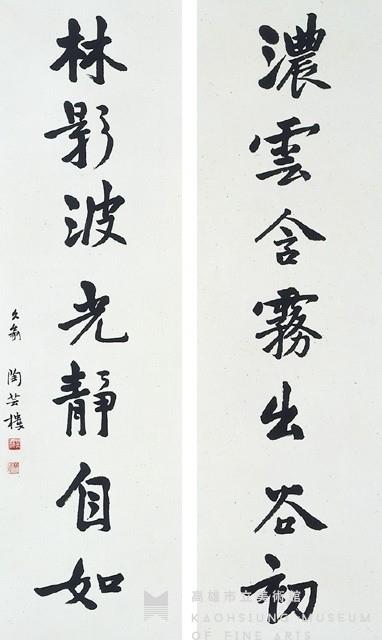 濃雲含霧出谷初
林影波光靜自如
陶芸樓
高雄市立美術館
KAOHSIUNG MUSEUM
OF FINE ARTS